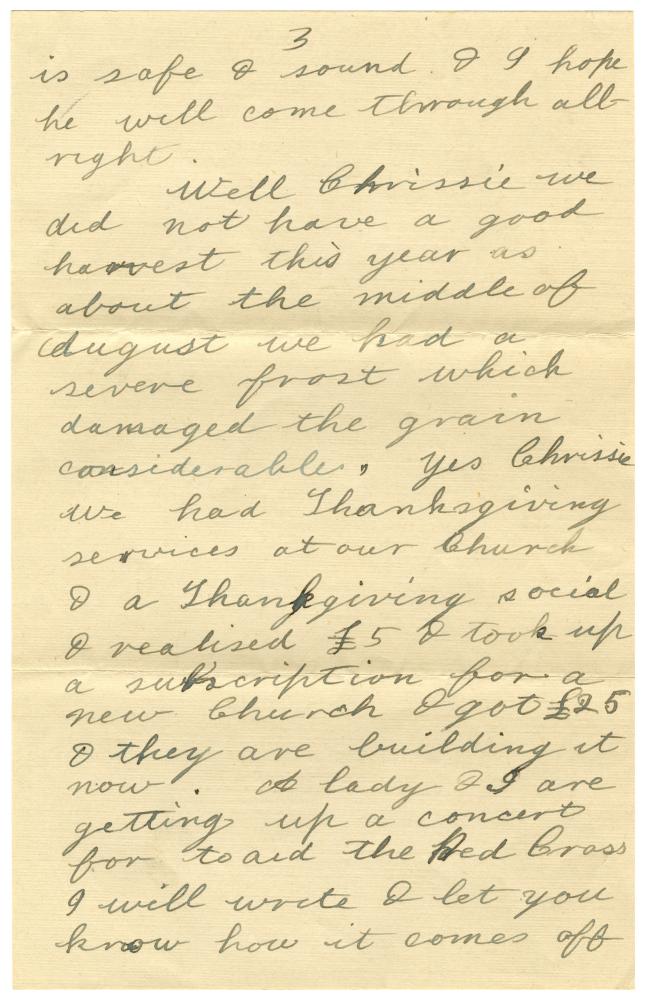 3
is safe & sound. & I hope
he will come through all-
right.
Well Chrissie we
did not have a good
harvest this year as
about the middle of
August we had a
severe frost which
damaged the grain
considerable. Yes Chrissie
we had Thanksgiving
services at our Church
& a Thankgiving social
& realised £5 & took up
a subscription for a
new Church & got £25
& they are building it
now. A lady & I are
getting up a concert
for to aid the Red Cross
I will write & let you
know how it comes off